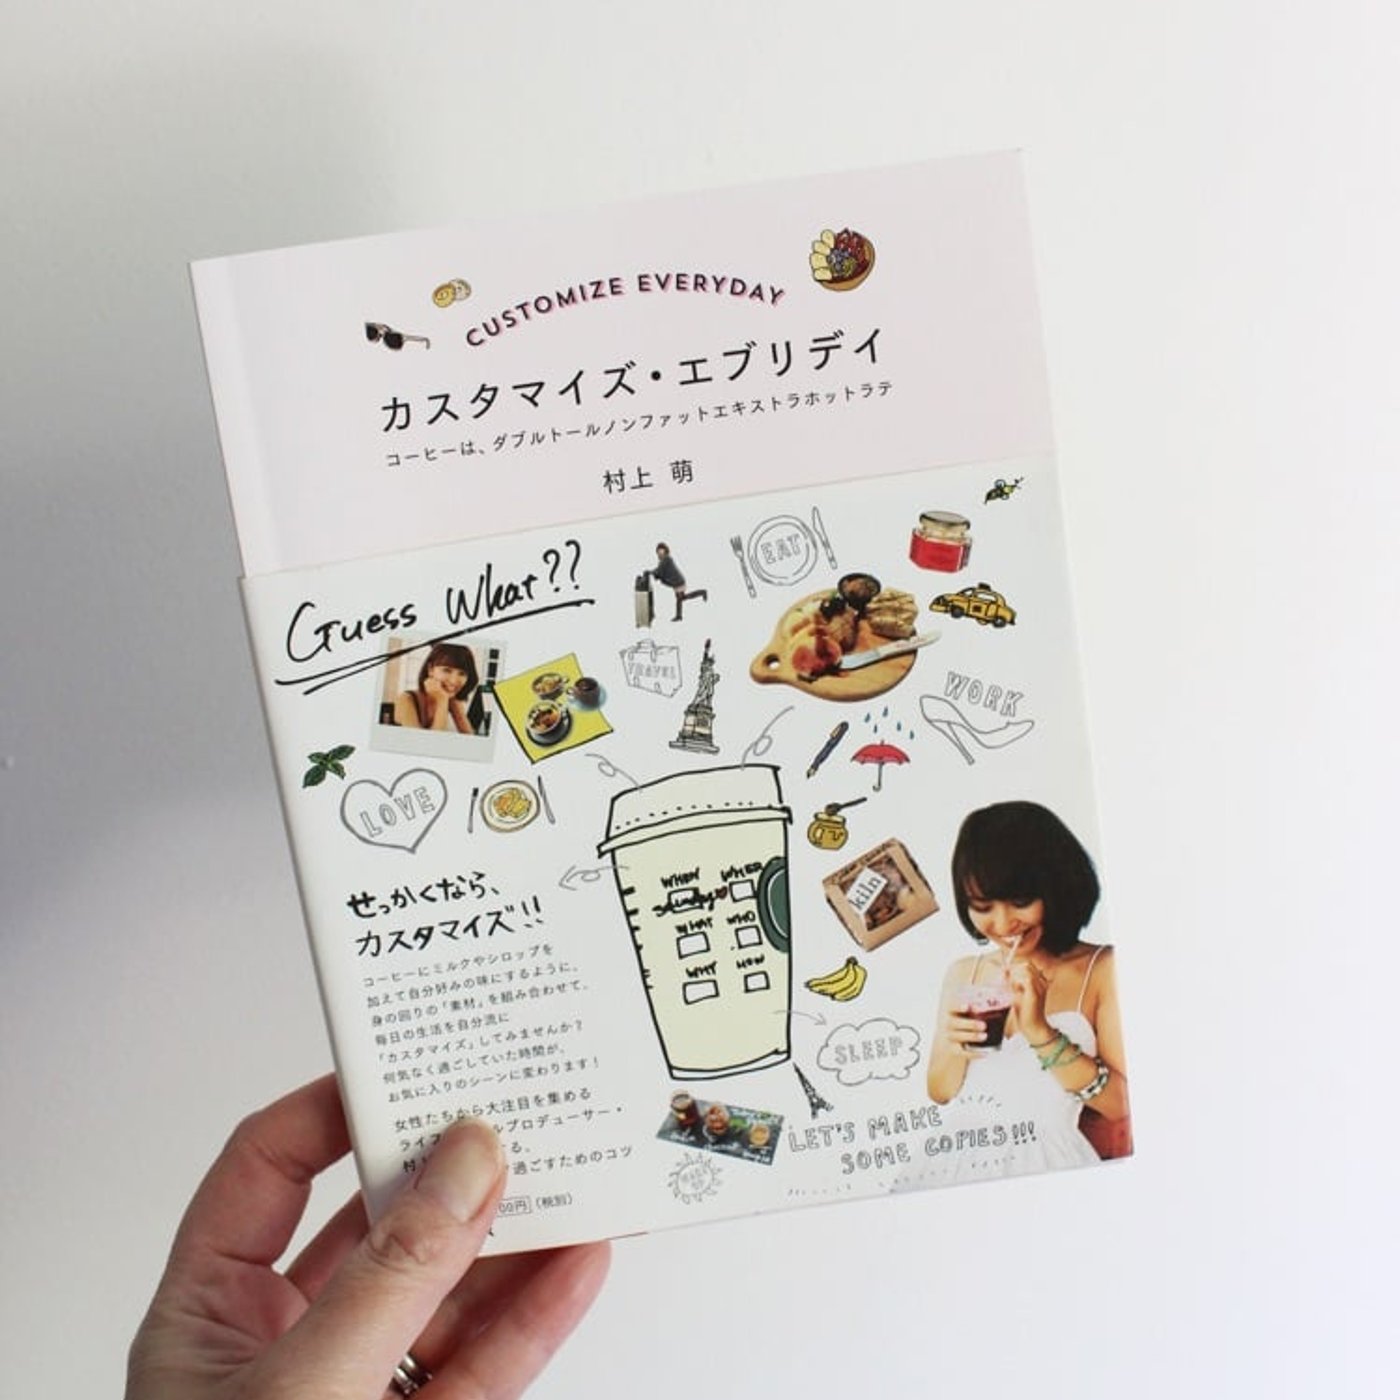 CUSTOMIZE EVERYDAY
カスタマイズ・エブリデイ
コーヒーは、ダブルトールノンファットエキストラホットラテ
村上 萌
Guess What??
EAT
TRAVEL
WORK
LOVE
せっかくなら、
カスタマイズ!!
コーヒーにミルクやシロップを
加えて自分好みの味にするように、
身の回りの「素材」を組み合わせて、
毎日の生活を自分流に
「カスタマイズ」してみませんか?
何気なく過ごしていた時間が、
お気に入りのシーンに変わります!
女性たちから大注目を集める
ルプロデューサー・
る、
過ごすためのコツ
00円(税別)
WHEN WHERE
WHAT WHO
WHY HOW
kiln
SLEEP
LET'S MAKE
SOME COPIES!!!